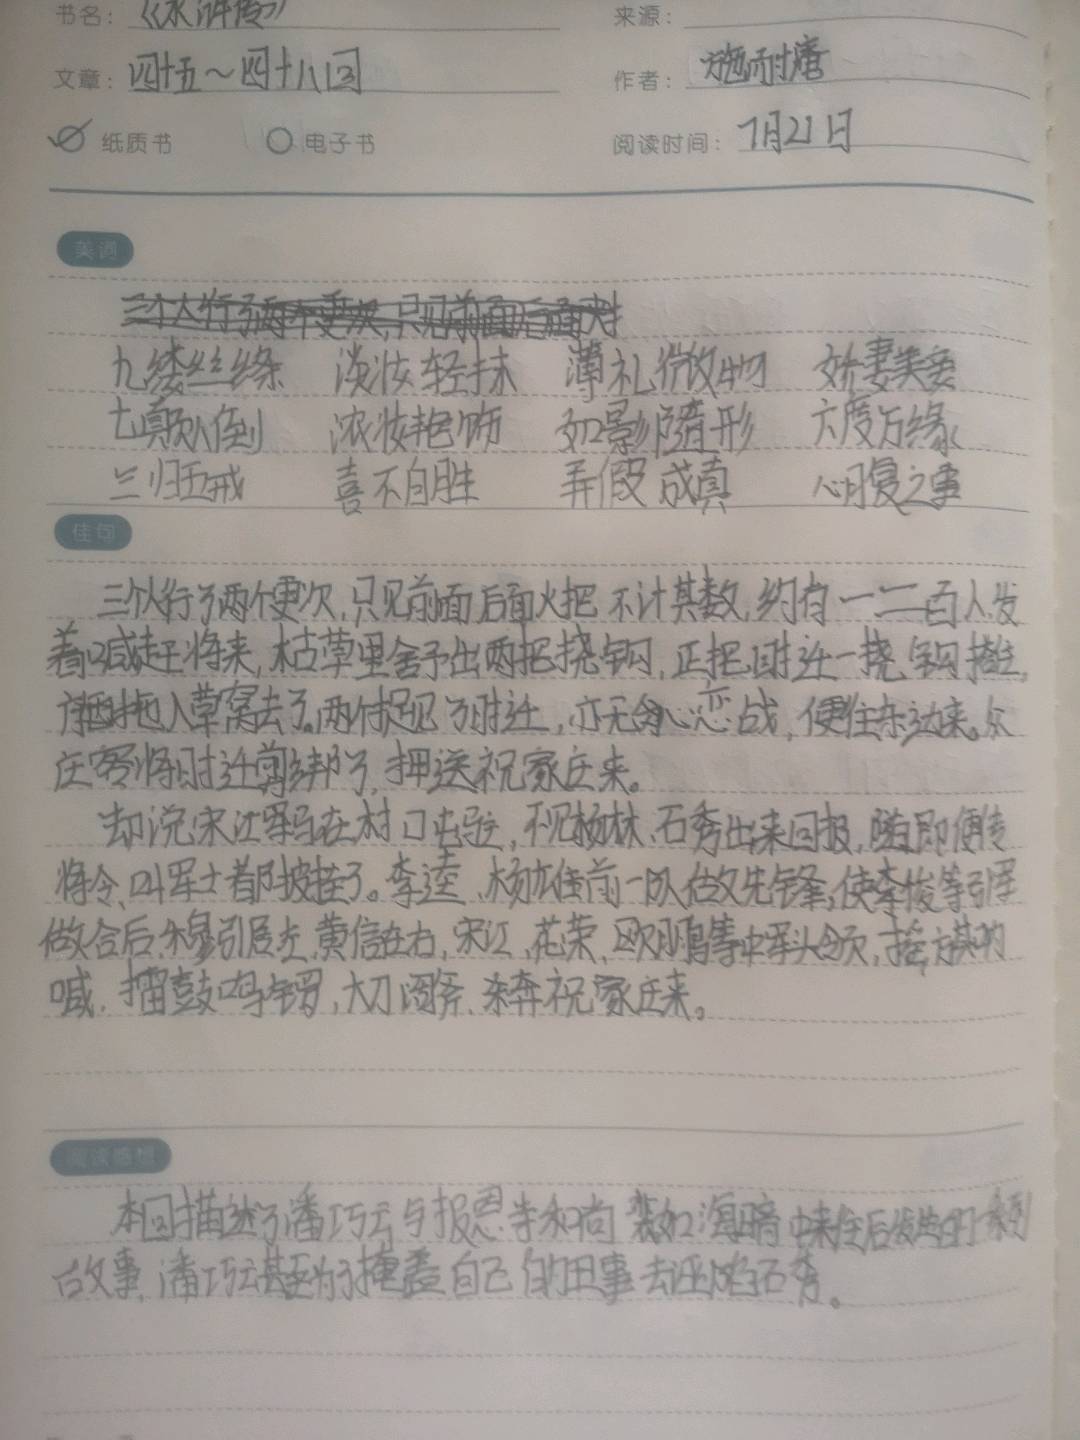 书名: 《水浒传》 来源:
文章: 四十五～四十八回 作者: 施耐庵
纸质书 电子书 阅读时间: 7月21日
美词
三个人行了两个更次,只见前面后面火
九缕丝绦 淡妆轻抹 薄礼微物 娇妻美妾
七颠八倒 浓妆艳饰 如影随形 六度万缘
三归五戒 喜不自胜 弄假成真 心腹之事
佳句
三个人行了两个更次,只见前面后面火把不计其数,约有一二百人,发
着喊赶将来,枯草里舍予出两把挠钩,正把时迁一挠钩搭住,
拖入草窝去了。两个捉见了时迁,亦无心恋战,便往东边来。众
庄客将时迁剪绑了,押送祝家庄来。
却说宋江军马在村口屯驻,不见杨林、石秀出来回报,随即便传
将令,叫军士都披挂了。李逵、杨雄前一队做先锋,使李俊等引军
做合后,穆弘引居左,黄信在右,宋江、花荣、欧鹏等中军头领,摇旗呐
喊,擂鼓鸣锣,大刀阔斧,杀奔祝家庄来。
阅读感想
本回描述了潘巧云与报恩寺和尚裴如海暗中来往后发生的一系列
故事,潘巧云甚至为了掩盖自己的丑事去诬陷石秀。